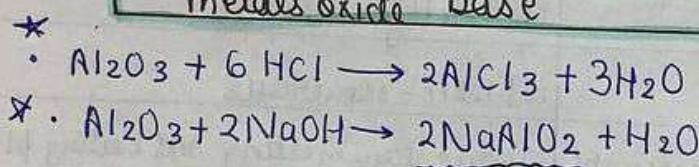 metals oxide base
* . Al2O3 + 6 HCl → 2AlCl3 + 3H2O
* . Al2O3 + 2NaOH → 2NaAlO2 + H2O